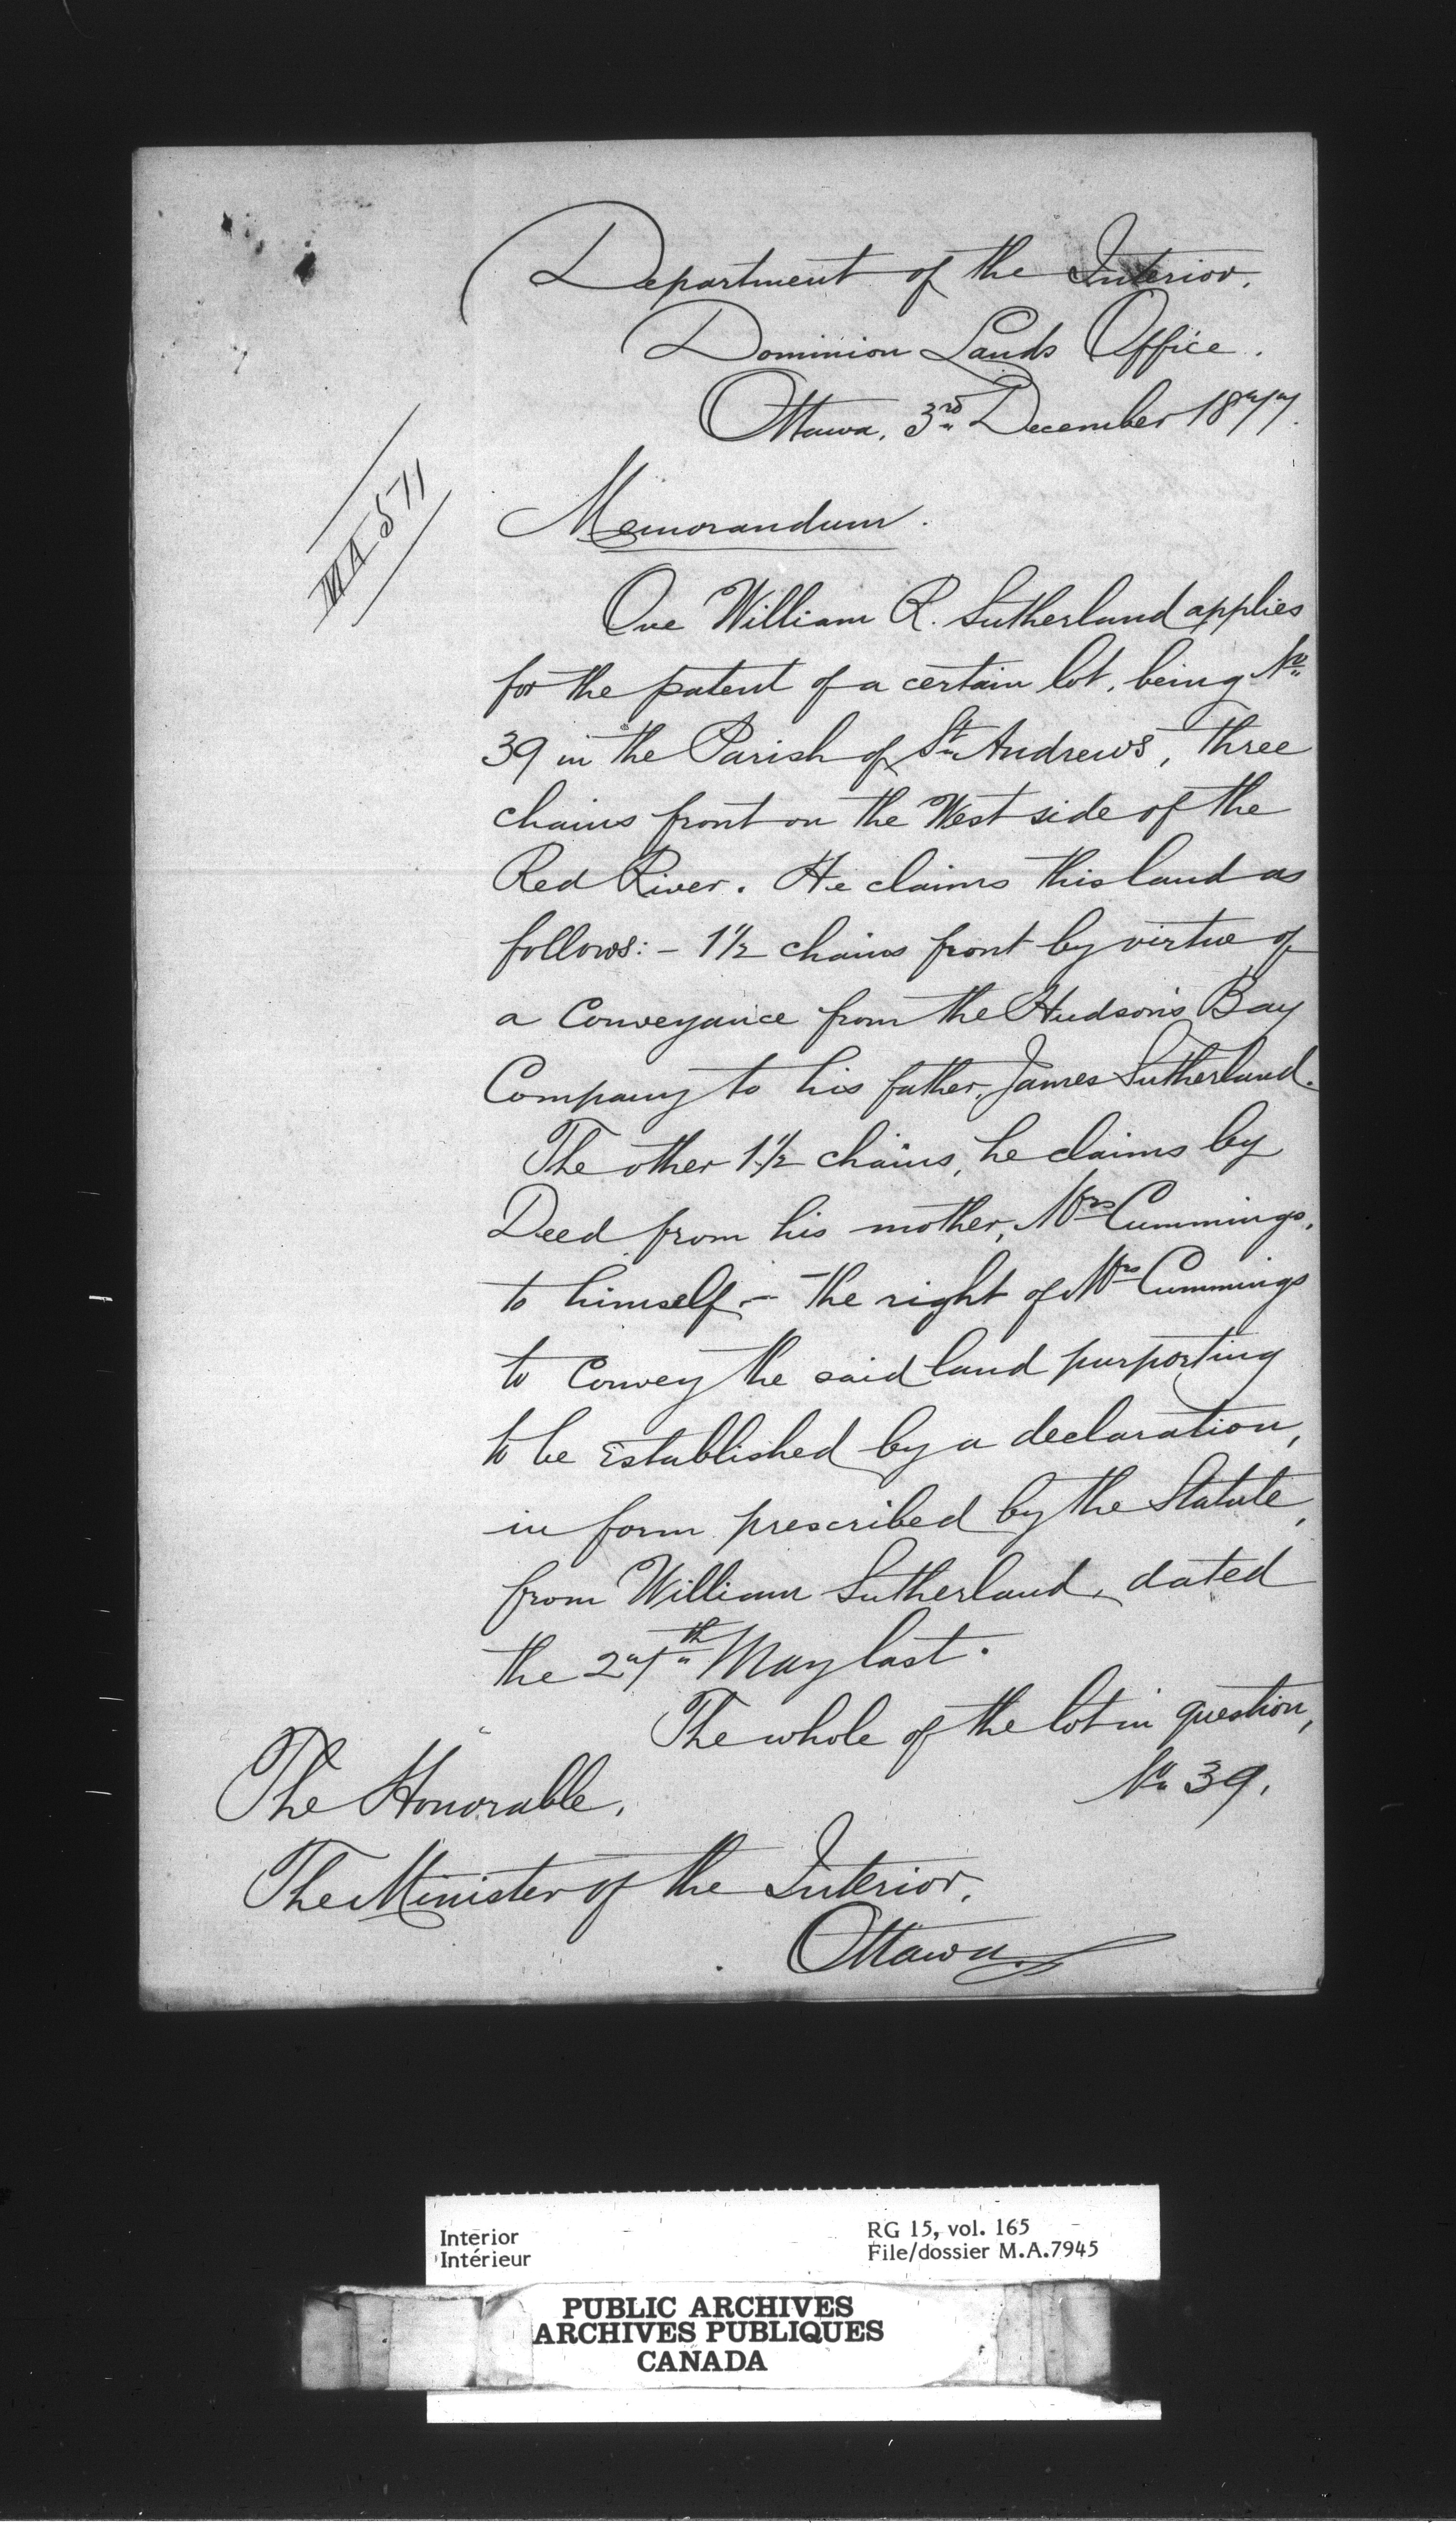 Department of the Interior.
Dominion Lands Office.
Ottawa, 3rd December 1877.
MA 571
Memorandum.
One William R. Sutherland applies
for the patent of a certain lot, being No
39 in the Parish of St Andrews, three
chains front on the West side of the
Red River. He claims this land as
follows:- 1 1/2 chains front by virtue of
a Conveyance from the Hudson's Bay
Company to his father, James Sutherland.
The other 1 1/2 chains, he claims by
Deed from his mother, Mrs Cummings,
to himself - the right of Mrs Cummings
to Convey the said land purporting
to be Established by a declaration,
in form prescribed by the Statute,
from William Sutherland, dated
the 27th May last.
The whole of the lot in question,
No 39,
The Honorable,
The Minister of the Interior,
Ottawa.
Interior
Intérieur
RG 15, vol. 165
File/dossier M.A.7945
PUBLIC ARCHIVES
ARCHIVES PUBLIQUES
CANADA